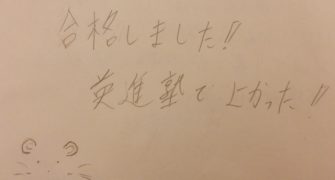 合格しました!!
英進塾で上かった!!